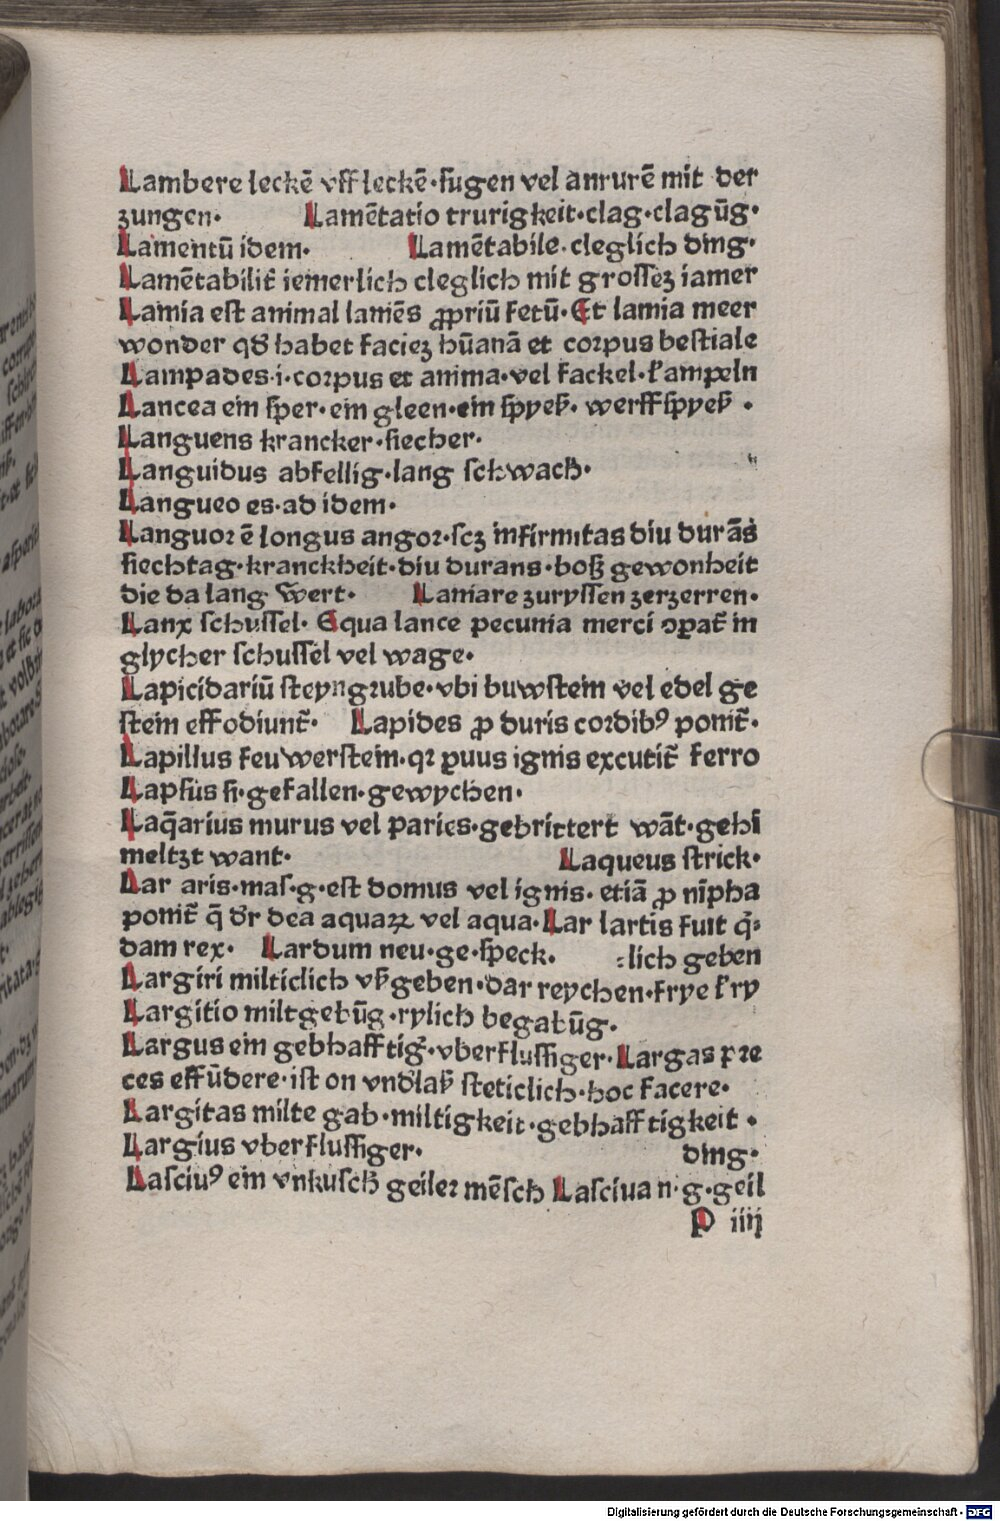 Lambere leckē vff leckē·sugen vel anrurē mit der
zungen· Lamētatio trurigkeit·clag·clagūg·
Lamentū idem· Lamētabile·cleglich ding·
Lamētabilit̄ iemerlich cleglich mit grossez iamer
Lamia est animal lamēs ꝓpriū fetū·Et lamia meer
wonder qd̄ habet faciez hūanā et corpus bestiale
Lampades·i·corpus et anima·vel fackel·kampeln
Lancea ein sper·ein gleen·ein spyeß·werffspyeß·
Languens krancker·siecher·
Languidus abfellig·lang schwach·
Langueo es·ad idem·
Languor ē longus angor·scz infirmitas diu durās
siechtag·kranckheit·diu durans·boß gewonheit
die da lang wert· Laniare zuryssen zerzerren·
Lanx schussel·Equa lance pecunia merci ɔparat̄ in
glycher schussel vel wage·
Lapicidariū steyngrube·vbi buwstein vel edel ge
stein effodiunt̄· Lapides ꝓ duris cordibꝰ ponit̄·
Lapillus feuwerstein·qꝛ puus ignis excutit̄ ferro
Lapsus si·gefallen·gewychen·
Laq̄arius murus vel paries·gebrittert wāt·gehi
meltzt want· Laqueus strick·
Lar aris·mas·g·est domus vel ignis·etiā ꝓ nīpha
ponit̄ q̄ dr̄ dea aquaꝝ vel aqua·Lar lartis fuit q̄⸗
dam rex· Lardum neu·ge·speck· ⸗lich geben
Largiri milticlich vßgeben·dar reychen·frye kry
Largitio miltgebūg·rylich begabūg·
Largus ein gebhafftiḡ·vberflussiger·Largas pre
ces effūdere·ist on vnd̄laß steticlich·hoc facere·
Largitas milte gab·miltigkeit·gebhafftigkeit·
Largius vberflussiger· ding·
Lasciuꝰ ein vnkusch geiler mēsch Lasciua n·g·geil
P iiij
Digitalisierung gefördert durch die Deutsche Forschungsgemeinschaft · DFG